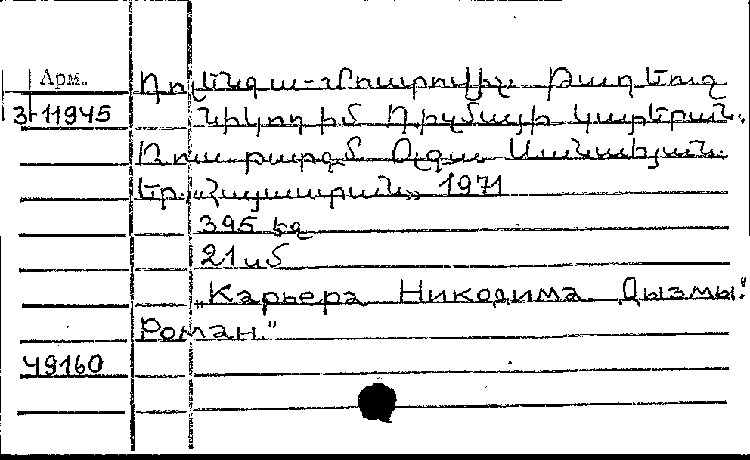 Арм. Դոլենգա-Մոստովիչ Թադեուշ
3-11945 Նիկոդիմ Դիզմայի կարերան.
Ռուս. թարգմ. Օլգա Սանասյան.
Եր. «Հայաստան» 1971
395 էջ
21 սմ
„Карьера Никодима Дызмы.
Роман."
49160